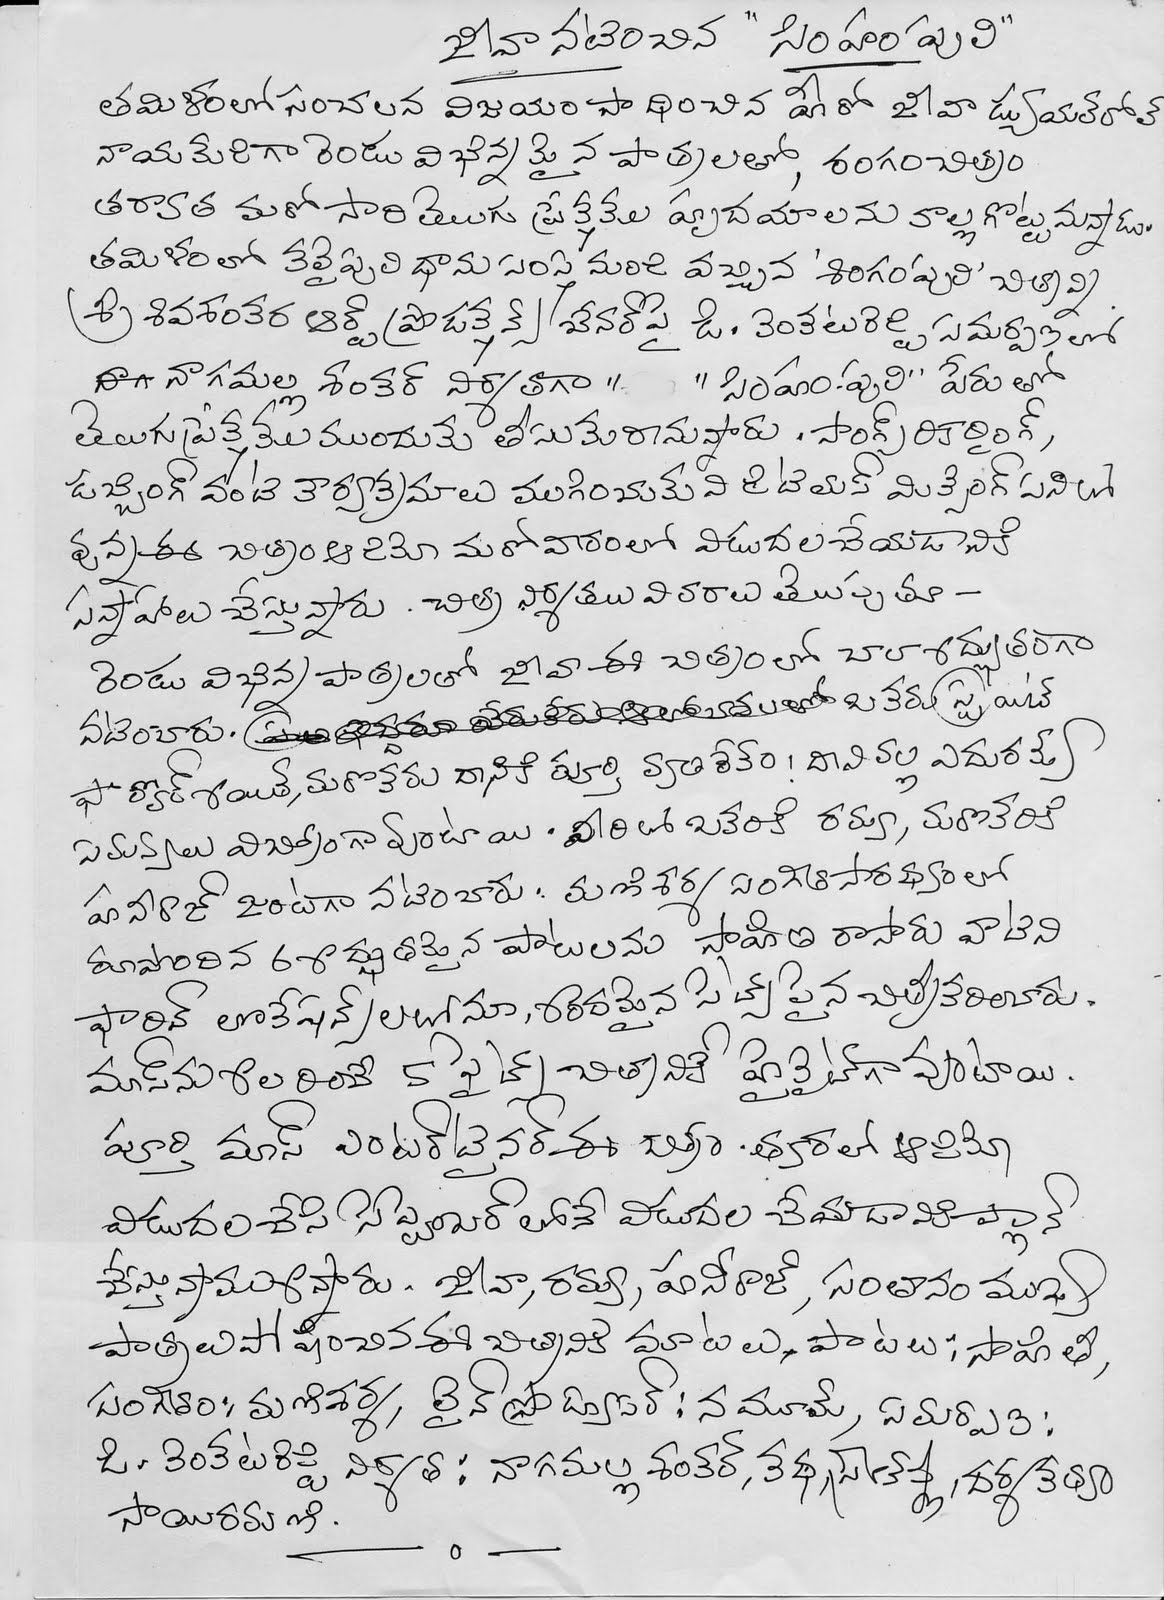 జీవా నటించిన "సింహం పులి"
తమిళంలో సంచలన విజయం సాధించిన హీరో జీవా డ్యుయల్‌రోల్
నాయకుడిగా రెండు విభిన్నమైన పాత్రలతో, రంగం చిత్రం
తర్వాత మరోసారి తెలుగు ప్రేక్షకుల హృదయాలను కొల్లగొట్టనున్నాడు.
తమిళంలో కలైపులి థాను సంస్థ నుండి వచ్చిన 'శింగం పులి' చిత్రాన్ని
శ్రీ శివశంకర ఆర్ట్ ప్రొడక్షన్స్ బేనర్‌పై డి. వెంకటరెడ్డి సమర్పణలో
నాగమల్ల శంకర్ నిర్మాతగా " "సింహం-పులి" పేరుతో
తెలుగు ప్రేక్షకుల ముందుకు తీసుకురానున్నారు. సాంగ్స్ రికార్డింగ్,
డబ్బింగ్ వంటి కార్యక్రమాలు ముగించుకుని డిటిఎస్ మిక్సింగ్ పనిలో
వున్న ఈ చిత్రం ఆడియో మరోవారంలో విడుదల చేయడానికి
సన్నాహాలు చేస్తున్నారు. చిత్ర నిర్మాతలు వివరాలు తెలుపుతూ –
రెండు విభిన్న పాత్రలలో జీవా ఈ చిత్రంలో చాలా అద్భుతంగా
నటించారు. ఒకరు స్ట్రయిట్
ఫార్వర్డ్ అయితే, మరొకరు దానికి పూర్తి వ్యతిరేకం! దానివల్ల ఎదురయ్యే
సమస్యలు విచిత్రంగా వుంటాయి. వీరిలో ఒకరికి రమ్య, మరొకరికి
హనీరాజ్ జంటగా నటించారు. మణిశర్మ సంగీత సారథ్యంలో
రూపొందిన అద్భుతమైన పాటలను సాహితి రాసారు వాటిని
ఫారిన్ లొకేషన్స్‌లలోనూ, ఖరీదైన సెట్స్ పైన చిత్రీకరించారు.
మాస్‌ను అలరించే 5 ఫైట్స్ చిత్రానికి హైలైట్‌గా వుంటాయి.
పూర్తి మాస్ ఎంటర్‌టైనర్ ఈ చిత్రం. త్వరలో ఆడియో
విడుదల చేసి సెప్టెంబర్‌లోనే విడుదల చేయడానికి ప్లాన్
చేస్తున్నామన్నారు. జీవా, రమ్య, హనీరాజ్, సంతానం ముఖ్య
పాత్రలు పోషించిన ఈ చిత్రానికి మాటలు, పాటలు: సాహితి,
సంగీతం: మణిశర్మ, లైన్ ప్రొడ్యూసర్: సమర్పణ:
డి. వెంకటరెడ్డి నిర్మాత: నాగమల్ల శంకర్, కథ, స్క్రీన్‌ప్లే, దర్శకత్వం
సాయిరమణి.